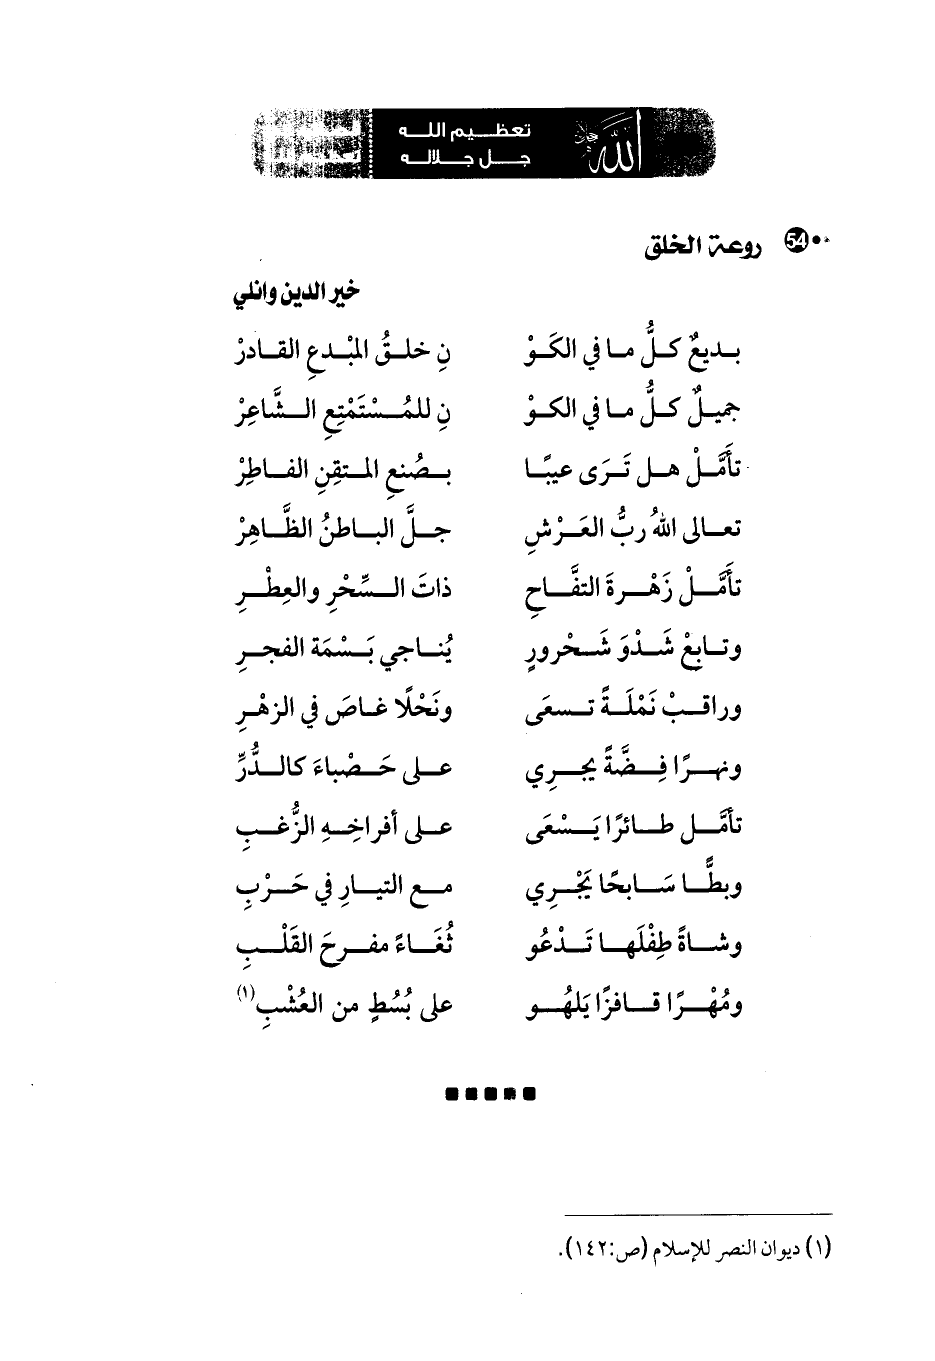 الله جل جلاله تعظيم الله
جل جلاله
54 روعة الخلق
خير الدين وانلي
بديعٌ كلُّ ما في الكَوْ نِ خلقُ المُبْدعِ القادرْ
جميلٌ كلُّ ما في الكوْ نِ للمُسْتَمْتِعِ الشَّاعِرْ
تأَمَّلْ هل تَرَى عيبًا بصُنعِ المتقِنِ الفاطِرْ
تعالى اللهُ ربُّ العَرْشِ جلَّ الباطنُ الظَّاهِرْ
تأَمَّلْ زَهْرةَ التفَّاحِ ذاتَ السِّحْرِ والعِطْرِ
وتابِعْ شَدْوَ شَحْرورٍ يُناجي بَسْمَة الفجرِ
وراقبْ نَمْلَةً تسعَى ونَحْلًا غاصَ في الزهْرِ
ونهرًا فِضَّةً يجرِي على حَصْباءَ كالدُّرِّ
تأمَّل طائرًا يَسْعَى على أفراخِهِ الزُّغبِ
وبطًّا سَابحًا يَجْرِي مع التيارِ في حَرْبِ
وشاةً طِفْلَها تَدْعُو ثُغَاءً مفرحَ القَلْبِ
ومُهْرًا قافزًا يَلهُو على بُسُطٍ من العُشْبِ(١)
(١) ديوان النصر للإسلام (ص:١٤٢).